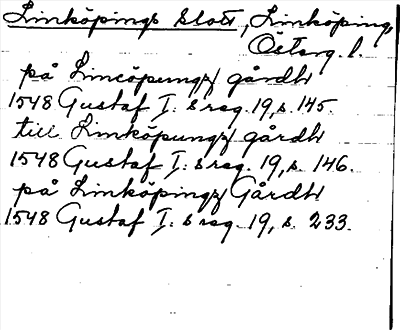 Linköpings slott, Linköping,
Österg. l.
på Lincöpungz gårdh
1548 Gustaf I:s reg. 19, s. 145.
till Linköpungz gårdh
1548 Gustaf I:s reg. 19, s. 146.
på Linköpingz Gårdh
1548 Gustaf I:s reg. 19, s. 233.